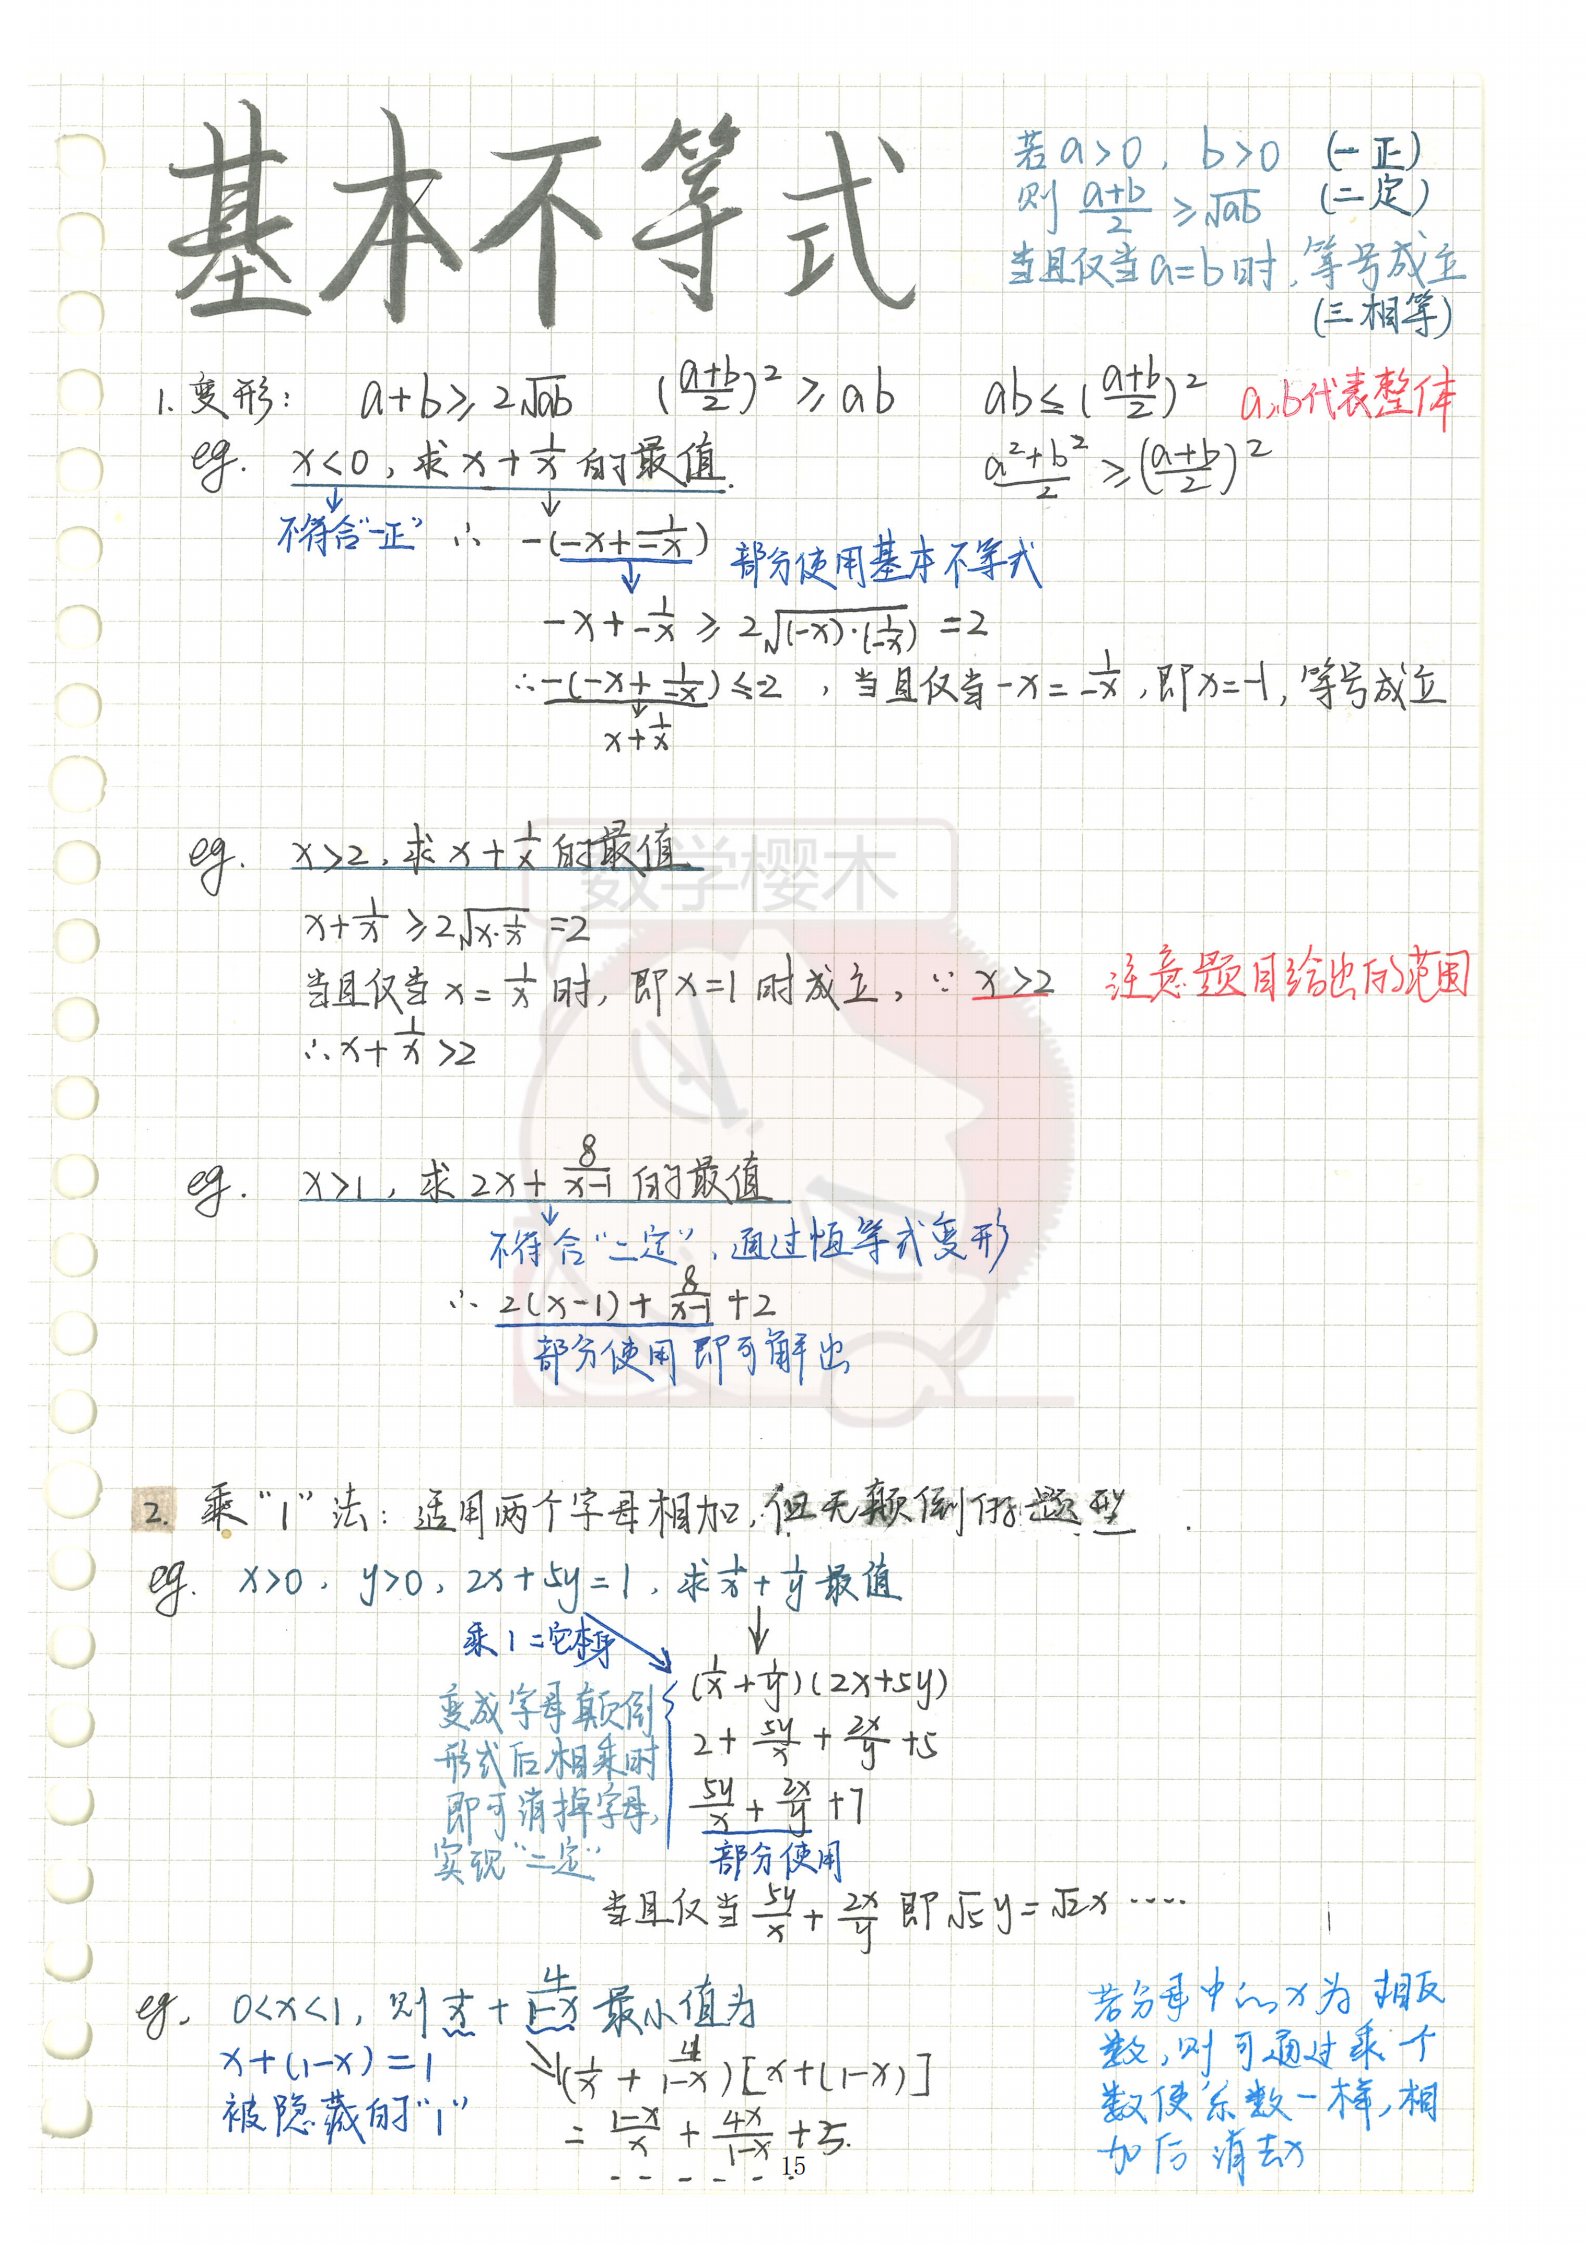 基本不等式
若a>0, b>0 (一正)
则 (a+b)/2 ≥ √ab (二定)
当且仅当a=b时,等号成立
(三相等)
1. 变形: a+b≥2√ab ((a+b)/2)² ≥ab ab≤((a+b)/2)² a,b代表整体
eg. x<0,求x+1/x的最值. (a²+b²)/2 ≥((a+b)/2)²
不符合"一正" ∴ -(-x+1/-x) 部分使用基本不等式
-x+1/-x ≥ 2√((-x)·(1/-x)) =2
∴-(-x+1/-x)≤-2 ,当且仅当-x=1/-x,即x=-1,等号成立
x+1/x
数学樱木
eg. x>2,求x+1/x的最值.
x+1/x ≥2√(x·1/x) =2
当且仅当x=1/x时,即x=1时成立,∵x>2 注意题目给出的范围
∴x+1/x>2
eg. x>1,求2x+8/(x-1)的最值
不符合"二定",通过恒等式变形
∴ 2(x-1)+8/(x-1)+2
部分使用即可解出
2. 乘"1"法:适用两个字母相加,但无颠倒的题型.
eg. x>0, y>0, 2x+5y=1,求1/x+1/y最值
乘1=它本身
(1/x+1/y)(2x+5y)
2+5y/x+2x/y+5
5y/x+2x/y+7
变成字母颠倒
形式后相乘时
即可消掉字母,
实现"二定"
部分使用
当且仅当5y/x+2x/y即√5y=√2x……
eg. 0<x<1,则1/x+4/(1-x)最小值为
x+(1-x)=1
被隐藏的"1"
(1/x+4/(1-x))[x+(1-x)]
= (1-x)/x+4x/(1-x)+5.
------
若分母中的x为相反
数,则可通过乘个
数使系数一样,相
加后消去x
15